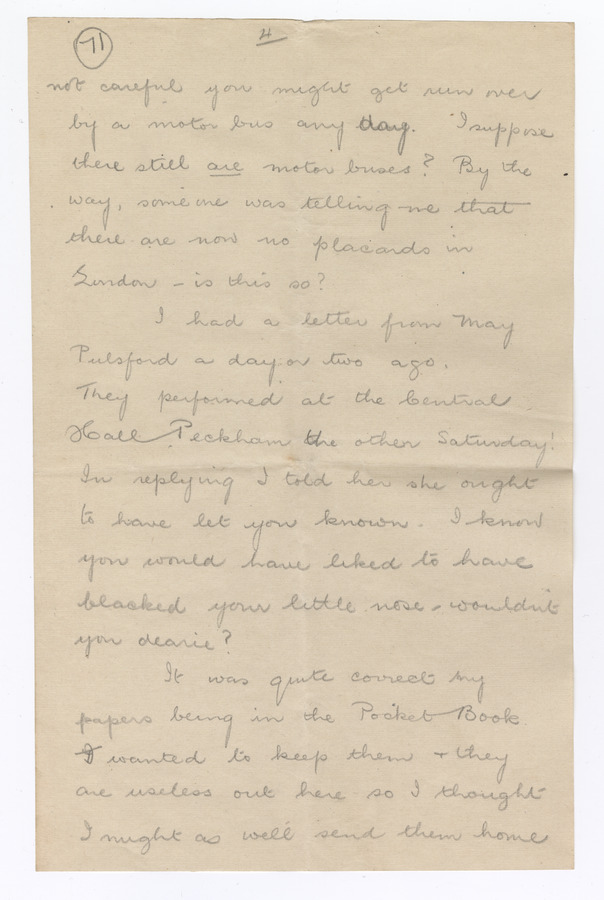 71
4
not careful you might get run over
by a motor bus any day. I suppose
there still are motor buses? By the
way, some one was telling me that
there are now no placards in
London - is this so?
I had a letter from May
Pulsford a day or two ago.
They performed at the Central
Hall Peckham the other Saturday!
In replying I told her she ought
to have let you known. I know
you would have liked to have
blacked your little nose - wouldn't
you dearie?
It was quite correct my
papers being in the Pocket Book.
I wanted to keep them + they
are useless out here so I thought
I might as well send them home